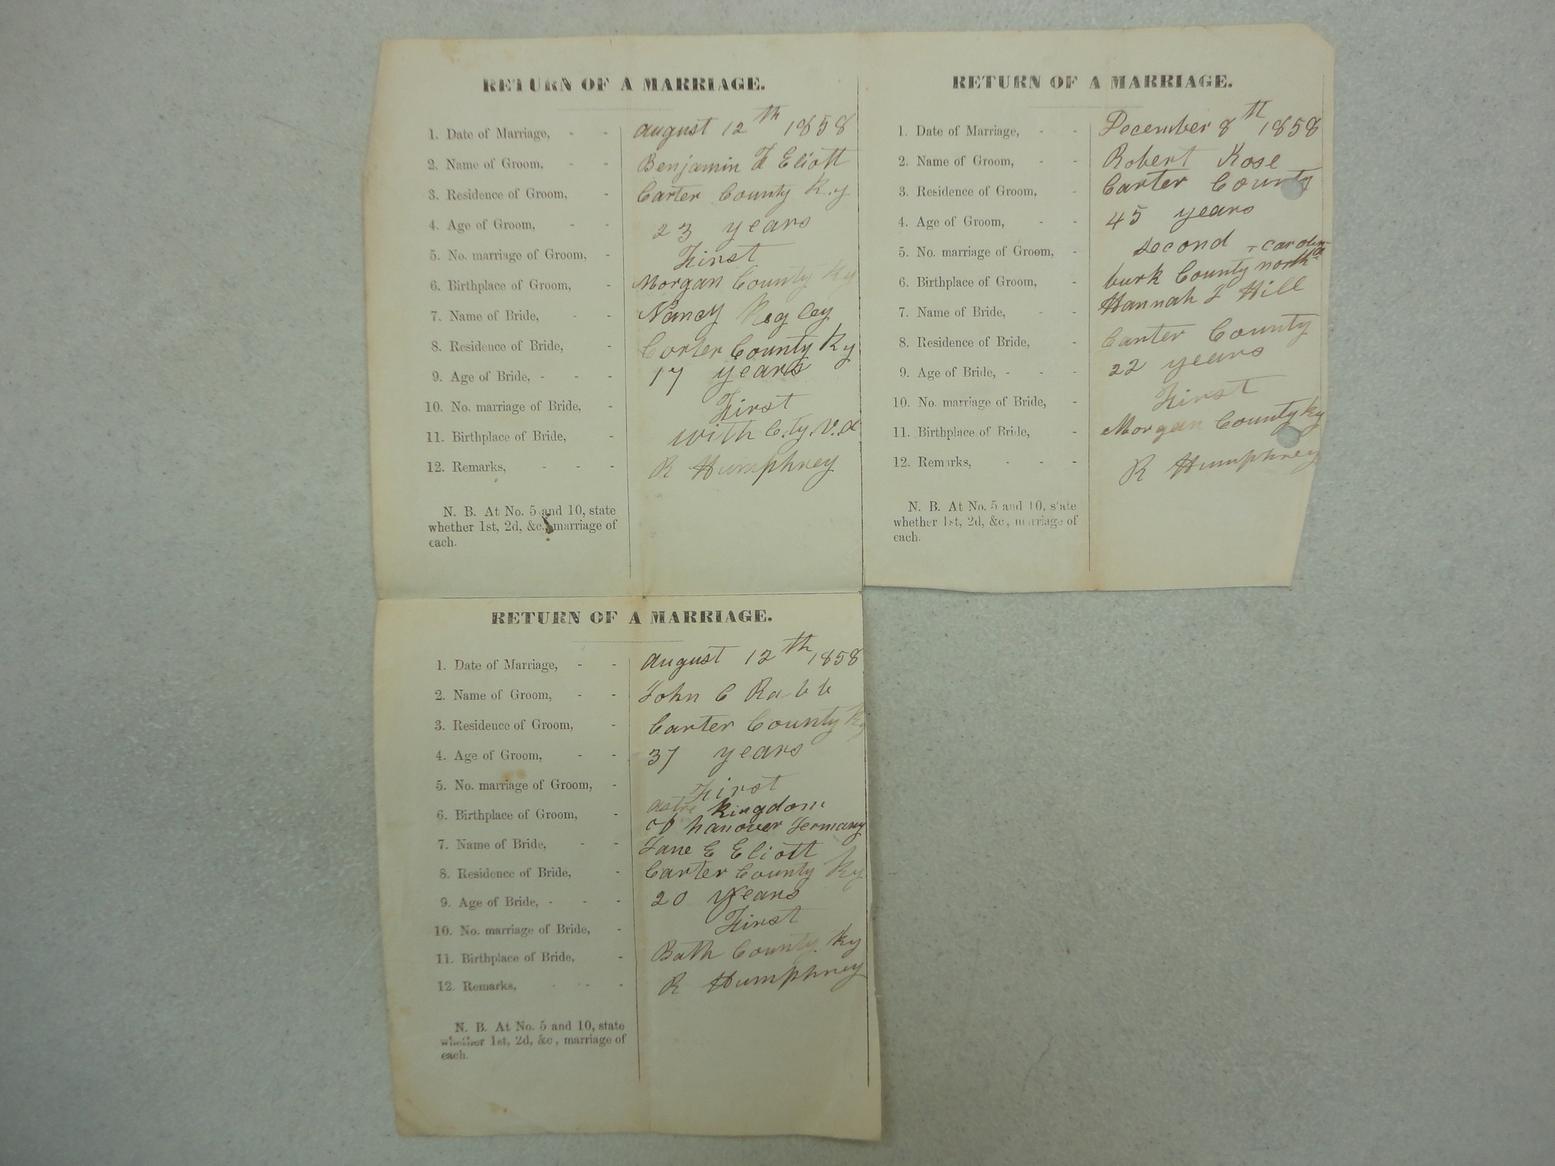 RETURN OF A MARRIAGE.
1. Date of Marriage, - - august 12th 1858
2. Name of Groom, - - Benjamin F Eliott
3. Residence of Groom, - Carter County Ky
4. Age of Groom, - - 23 years
5. No. marriage of Groom, - First
6. Birthplace of Groom, - Morgan County Ky
7. Name of Bride, - - Nancy
8. Residence of Bride, - Carter County Ky
9. Age of Bride, - - - 17 years
10. No. marriage of Bride, - First
11. Birthplace of Bride, - with C.ty. V.a
12. Remarks, - - - R Humphrey
N. B. At No. 5 and 10, state
whether 1st, 2d, &c., marriage of
each.
RETURN OF A MARRIAGE.
1. Date of Marriage, - - December 8th 1858
2. Name of Groom, - - Robert Rose
3. Residence of Groom, - Carter County
4. Age of Groom, - - 45 years
5. No. marriage of Groom, - second
6. Birthplace of Groom, - burk County north carolina
7. Name of Bride, - - Hannah J Hill
8. Residence of Bride, - Carter County
9. Age of Bride, - - - 22 years
10. No. marriage of Bride, - First
11. Birthplace of Bride, - Morgan County ky
12. Remarks, - - - R Humphrey
N. B. At No. 5 and 10, state
whether 1st, 2d, &c, marriage of
each.
RETURN OF A MARRIAGE.
1. Date of Marriage, - - august 12th 1858
2. Name of Groom, - - John C Rabb
3. Residence of Groom, - Carter County Ky
4. Age of Groom, - - 37 years
5. No. marriage of Groom, - First
6. Birthplace of Groom, - kingdom
of hanover Germany
7. Name of Bride, - - Jane E Eliott
8. Residence of Bride, - Carter County Ky
9. Age of Bride, - - - 20 years
10. No. marriage of Bride, - First
11. Birthplace of Bride, - Bath County Ky
12. Remarks, - - - R Humphrey
N. B. At No. 5 and 10, state
whether 1st, 2d, &c, marriage of
each.